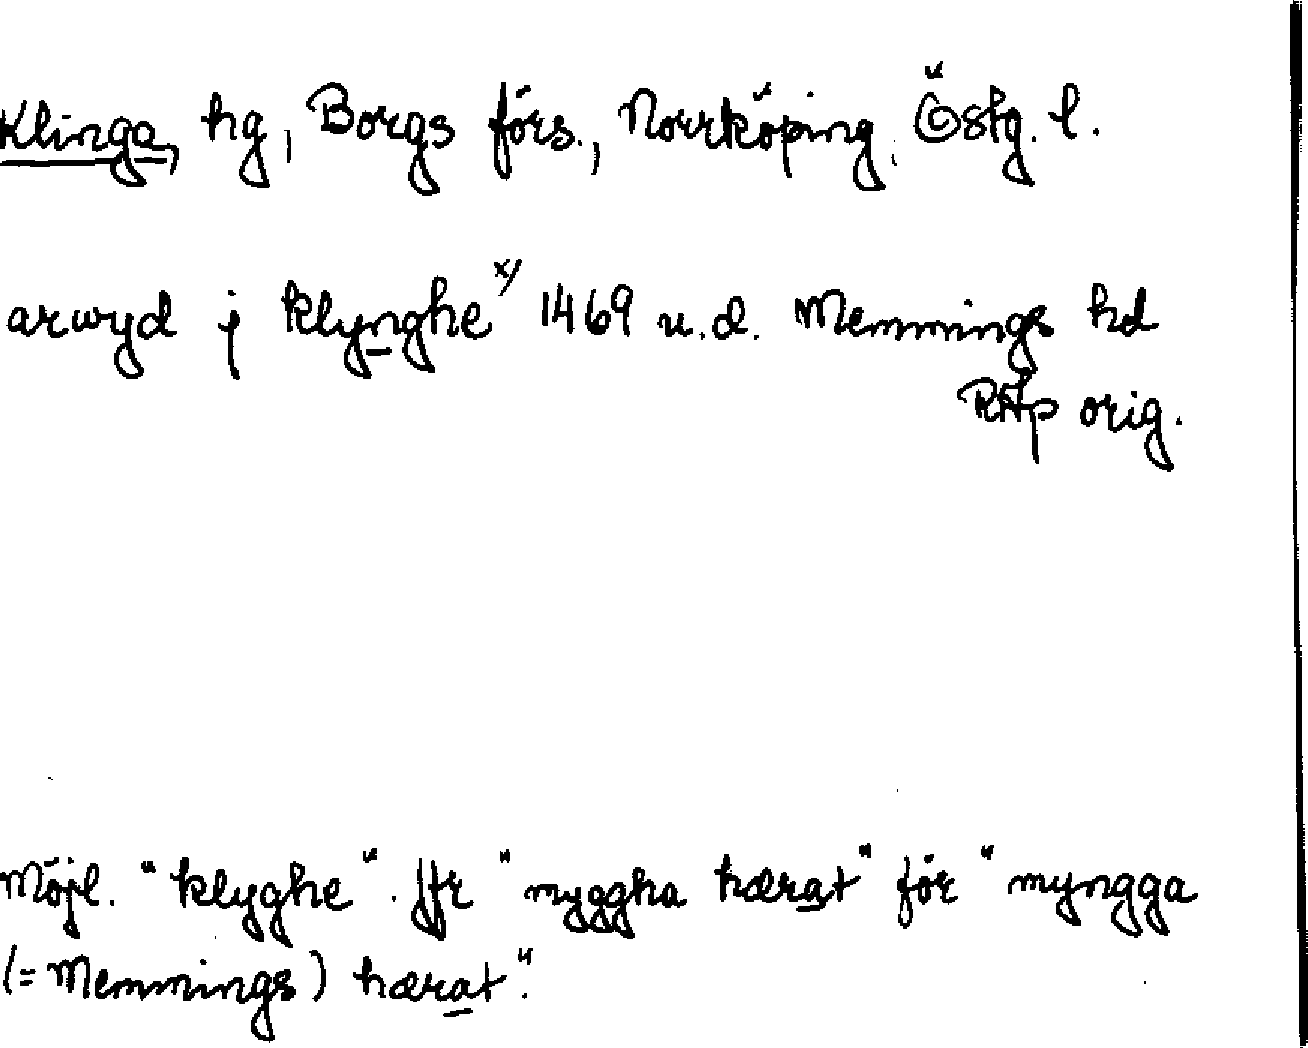 Klinga, hg, Borgs förs., Norrköping, Östg. l.
arwyd j klynghe x) 1469 u.d. Memmings hd
RAp orig.
Möjl. "klyghe". Jfr "myggha hærat" för "myngga
(= Memmings) hærat".